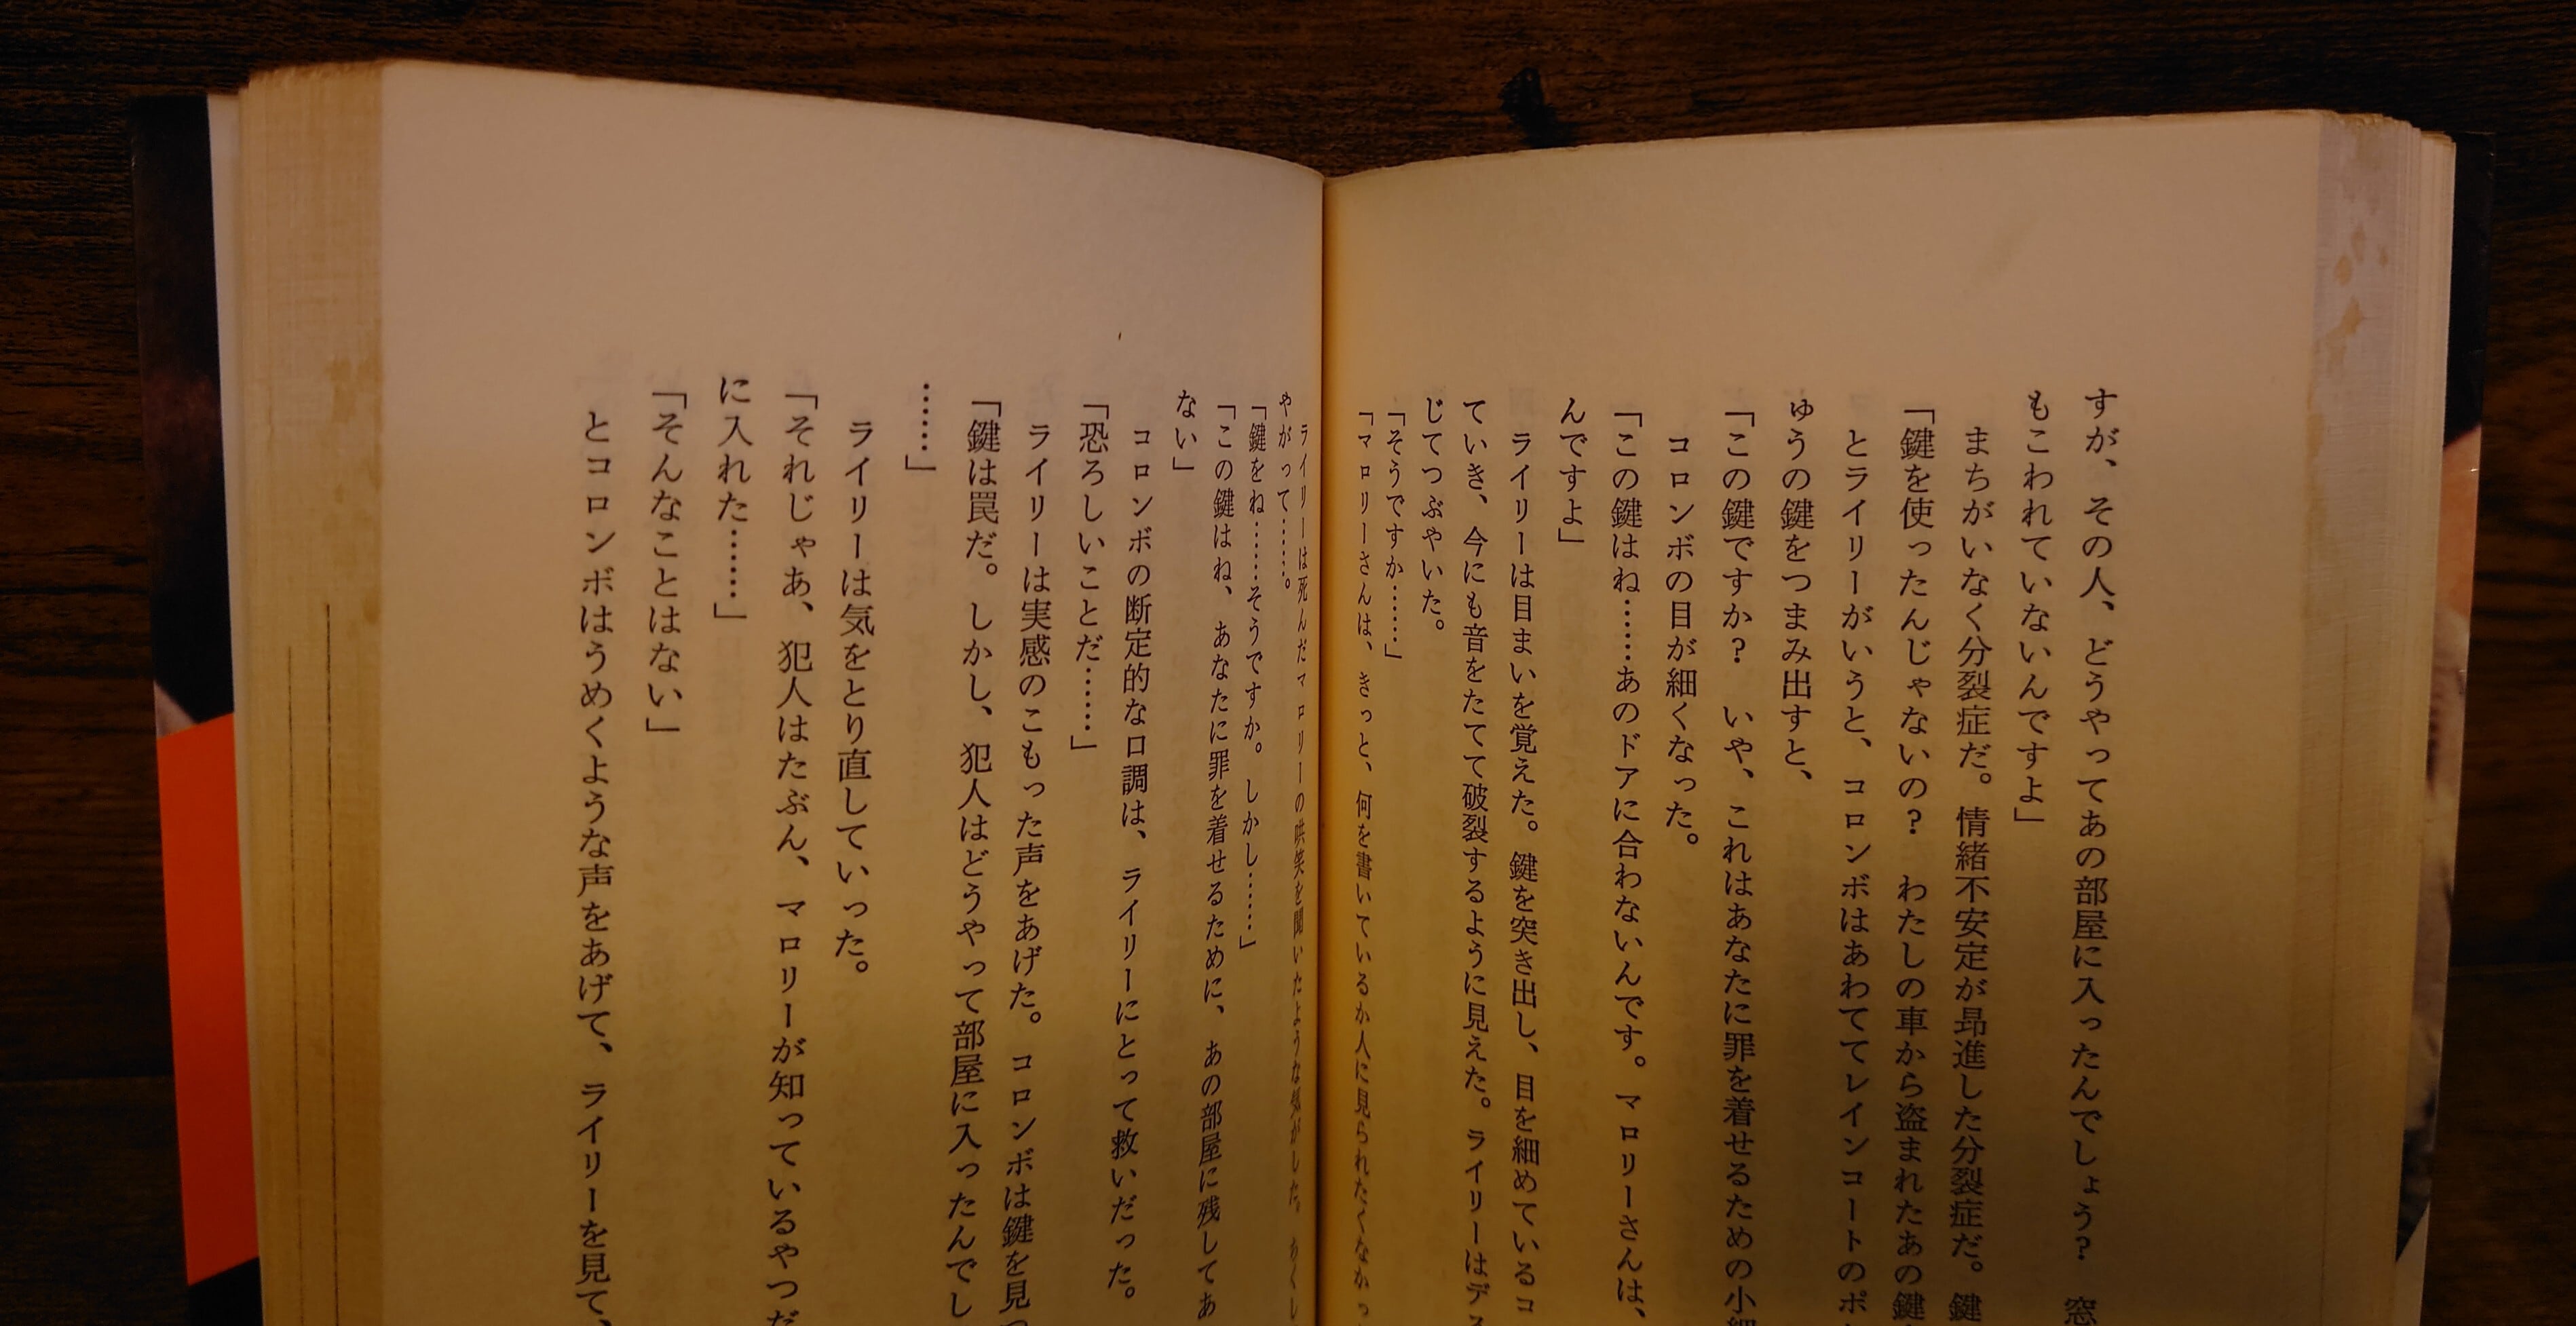 すが、その人、どうやってあの部屋に入ったんでしょう? 窓
もこわれていないんですよ」
まちがいなく分裂症だ。情緒不安定が昂進した分裂症だ。鍵
「鍵を使ったんじゃないの? わたしの車から盗まれたあの鍵
とライリーがいうと、コロンボはあわててレインコートのポ
ゅうの鍵をつまみ出すと、
「この鍵ですか? いや、これはあなたに罪を着せるための小細
コロンボの目が細くなった。
「この鍵はね……あのドアに合わないんです。マロリーさんは、
んですよ」
ライリーは目まいを覚えた。鍵を突き出し、目を細めているコ
ていき、今にも音をたてて破裂するように見えた。ライリーはデス
じてつぶやいた。
「そうですか……」
「マロリーさんは、きっと、何を書いているか人に見られたくなかっ
ライリーは死んだマロリーの哄笑を聞いたような気がした。ちくし
やがって……。
「鍵をね……そうですか。しかし……」
「この鍵はね、あなたに罪を着せるために、あの部屋に残してあ
ない」
コロンボの断定的な口調は、ライリーにとって救いだった。
「恐ろしいことだ……」
ライリーは実感のこもった声をあげた。コロンボは鍵を見つ
「鍵は罠だ。しかし、犯人はどうやって部屋に入ったんでし
……」
ライリーは気をとり直していった。
「それじゃあ、犯人はたぶん、マロリーが知っているやつだ
に入れた……」
「そんなことはない」
とコロンボはうめくような声をあげて、ライリーを見て、